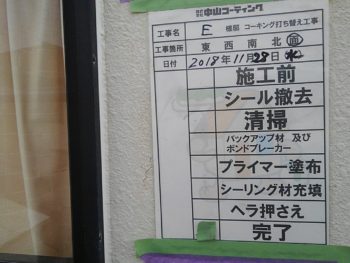 株式会社 中山コーティング
工事名 E 様邸 コーキング打ち替え工事
工事箇所 東 西 南 北 面
日付 2018年11月28日 水
施工前
シール撤去
清掃
バックアップ材 及び
ボンドブレーカー
プライマー塗布
シーリング材充填
ヘラ押さえ
完了